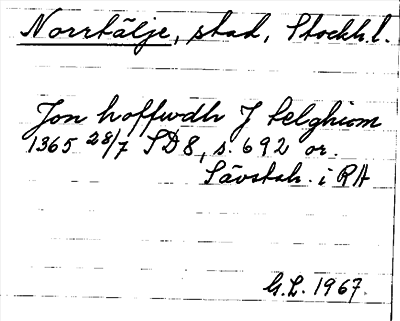 Norrtälje, stad, Stockh. l.
Jon hoffwdh J telghiom
1365 28/7 SD 8, s. 692 or.
Sävstah. i RA
G.L. 1967.